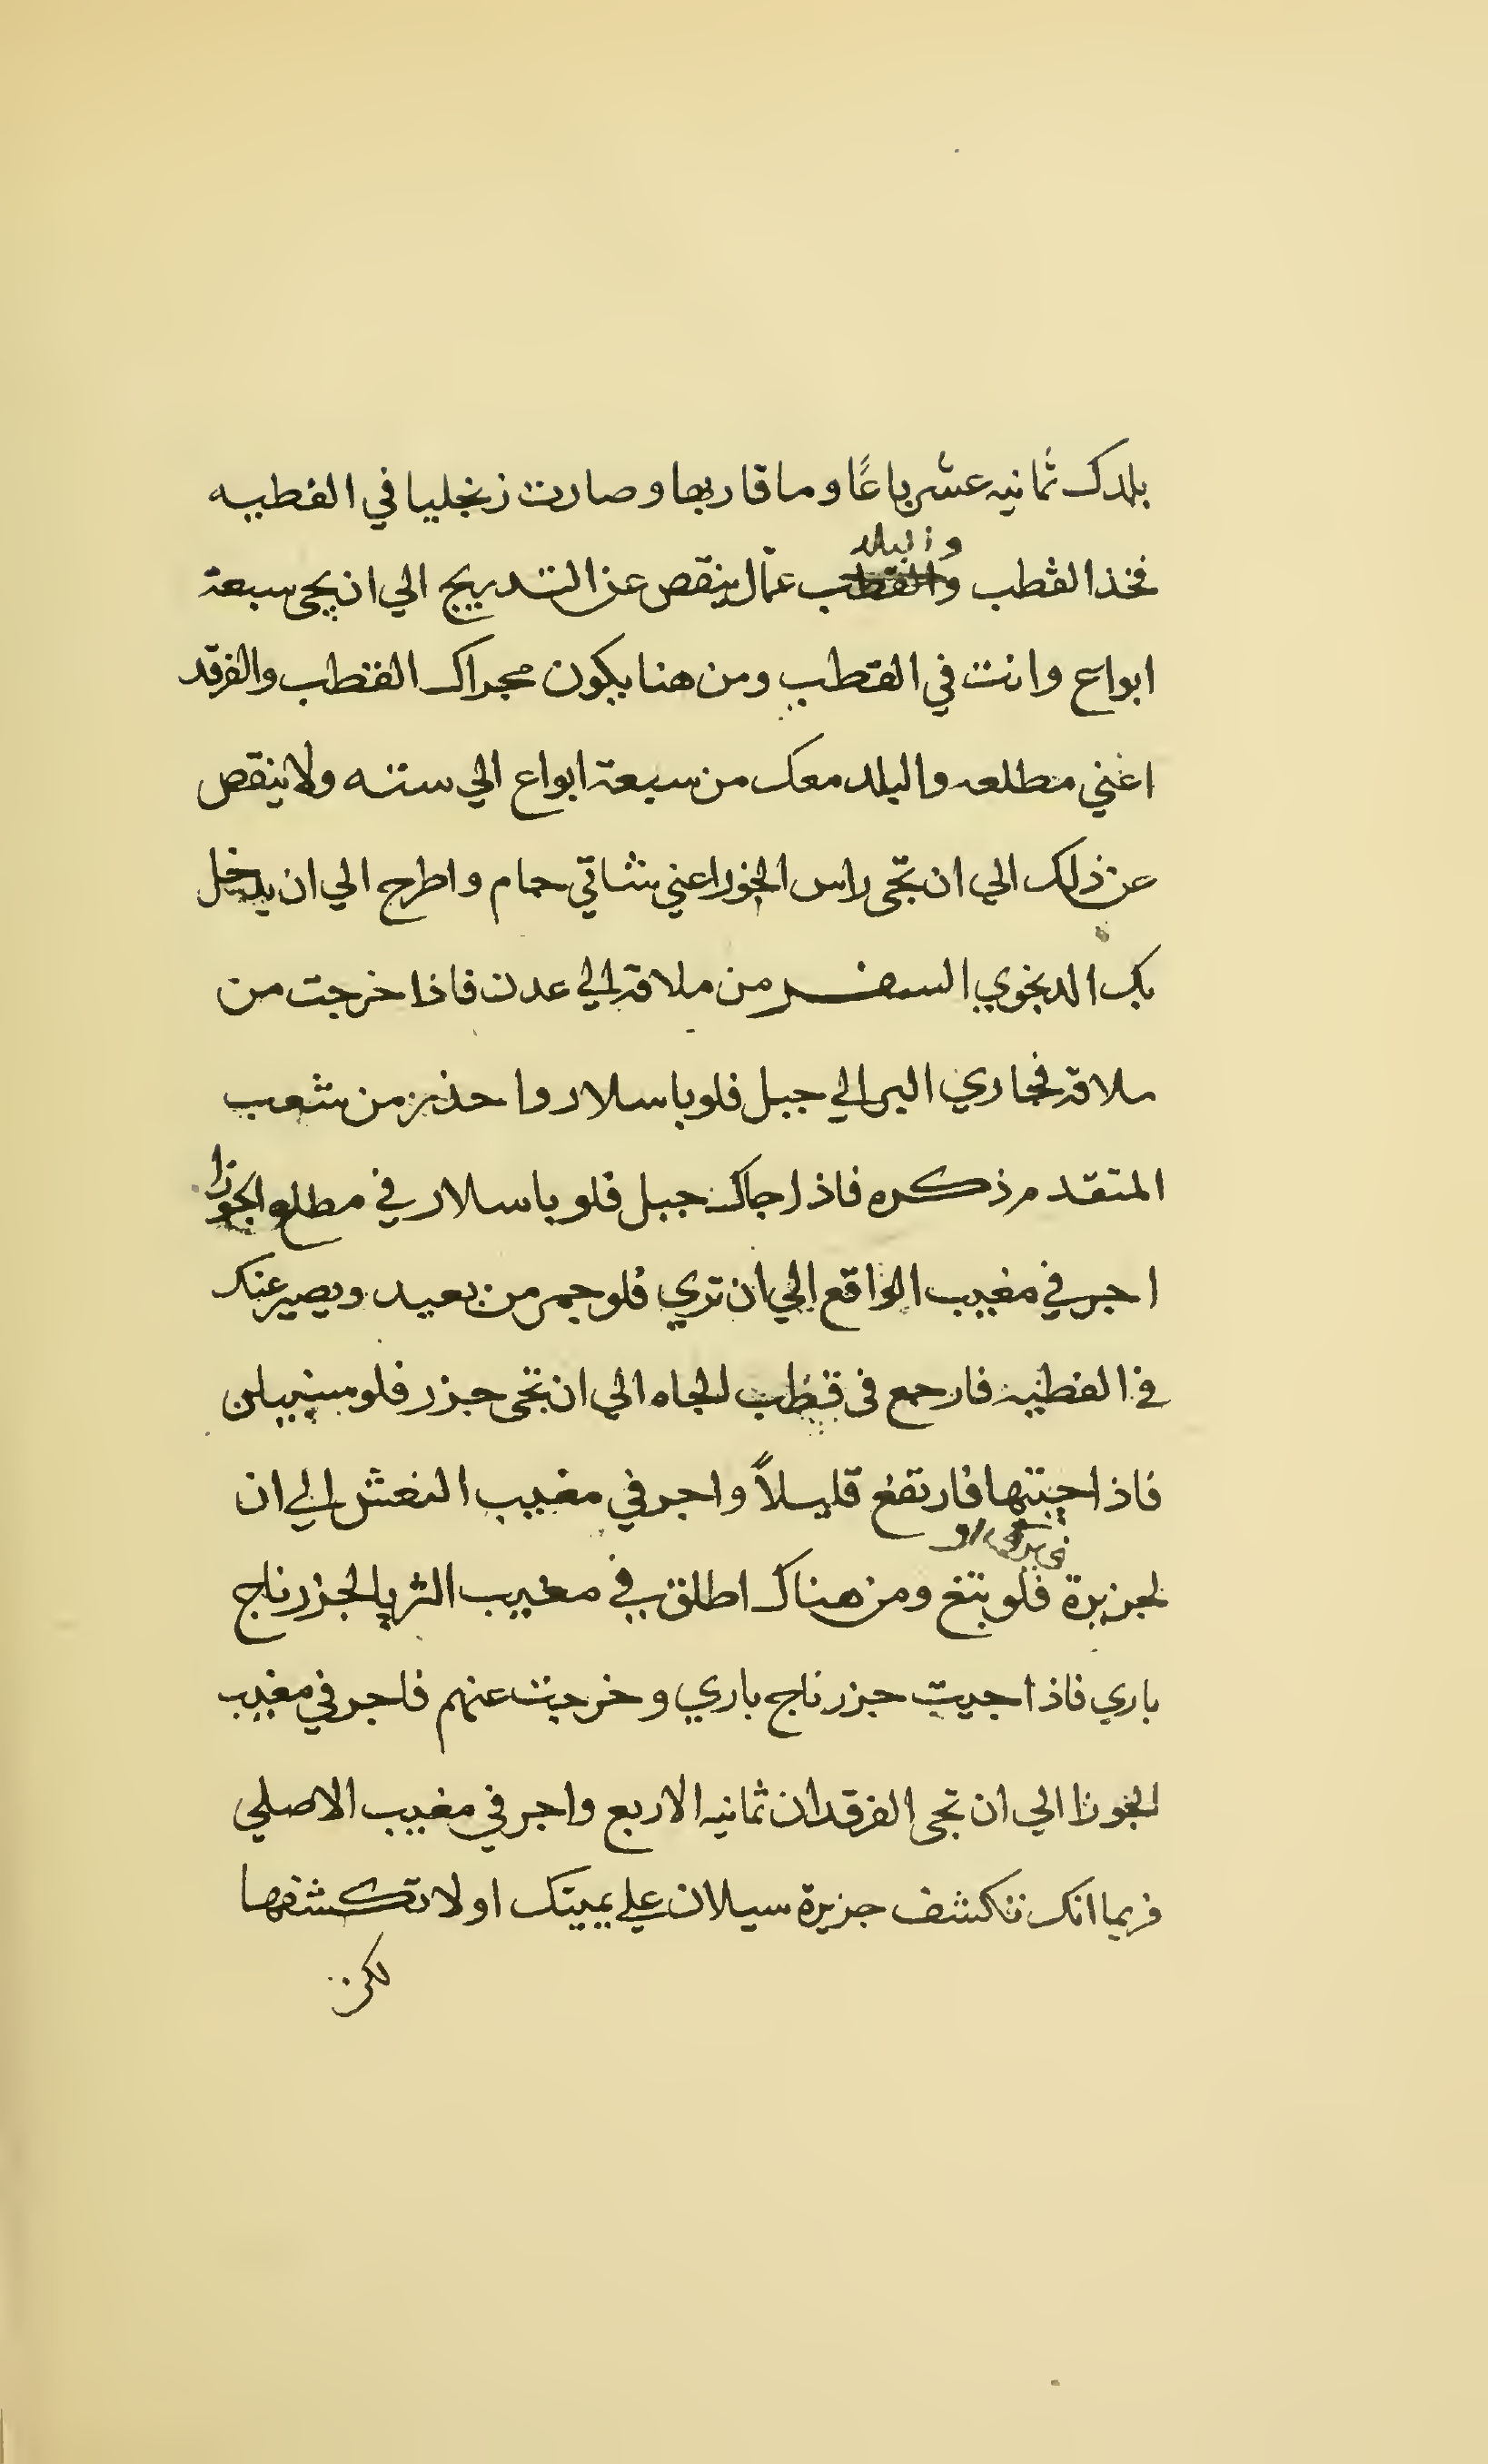 بلدك ثمانيه عشر باعًا وما قاربها وصارت زنجليا في القطبيه
والبلد
فخذ القطب والقطب عمّال ينقص عن التدريج الي ان يجى سبعة
ابواع وانت في القطب ومن هنا يكون مجراك القطب والفرقد
اعني مطلعه والبلد معك من سبعة ابواع الي سته ولا ينقص
عن ذلك الي ان تجى راس الخور اعني شاتي حمام واطرح الي ان يدخل
بك الدبخوي السفر من ملاقة الي عدن فاذا خرجت من
ملاقة فجاري البر الي جبل فلوباسلار واحذر من شعب
المتقدم ذكره فاذا جاك جبل فلوباسلار في مطلع الجوزا
اجر في مغيب الواقع الي ان تري فلوجمر من بعيد ويصير عنك
في القطبيه فارجع في قطب الجاه الي ان تجى جزر فلوسنبيلن
فاذا جيتها فارتفع قليلاً واجر في مغيب النعش الي ان
لجزيرة فلوبتغ ومن هناك اطلق في مغيب الثريا لجزر ناج
باري فاذا جيت جزر ناج باري وخرجت عنهم فاجر في مغيب
الجوزا الي ان تجى الفرقدان ثمانيه الاربع واجر في مغيب الاصلي
فربما انك تنكشف جزيرة سيلان علي يمينك او لا تكشفها
لكن